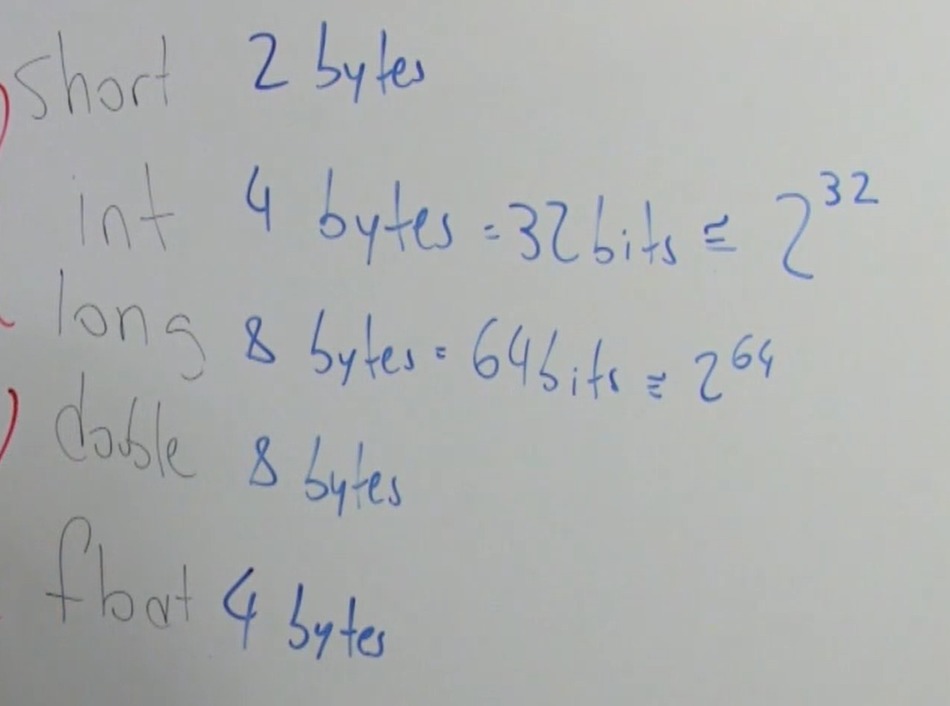 short 2 bytes
int 4 bytes = 32 bits ≅ 2^32
long 8 bytes = 64 bits ≅ 2^64
double 8 bytes
float 4 bytes